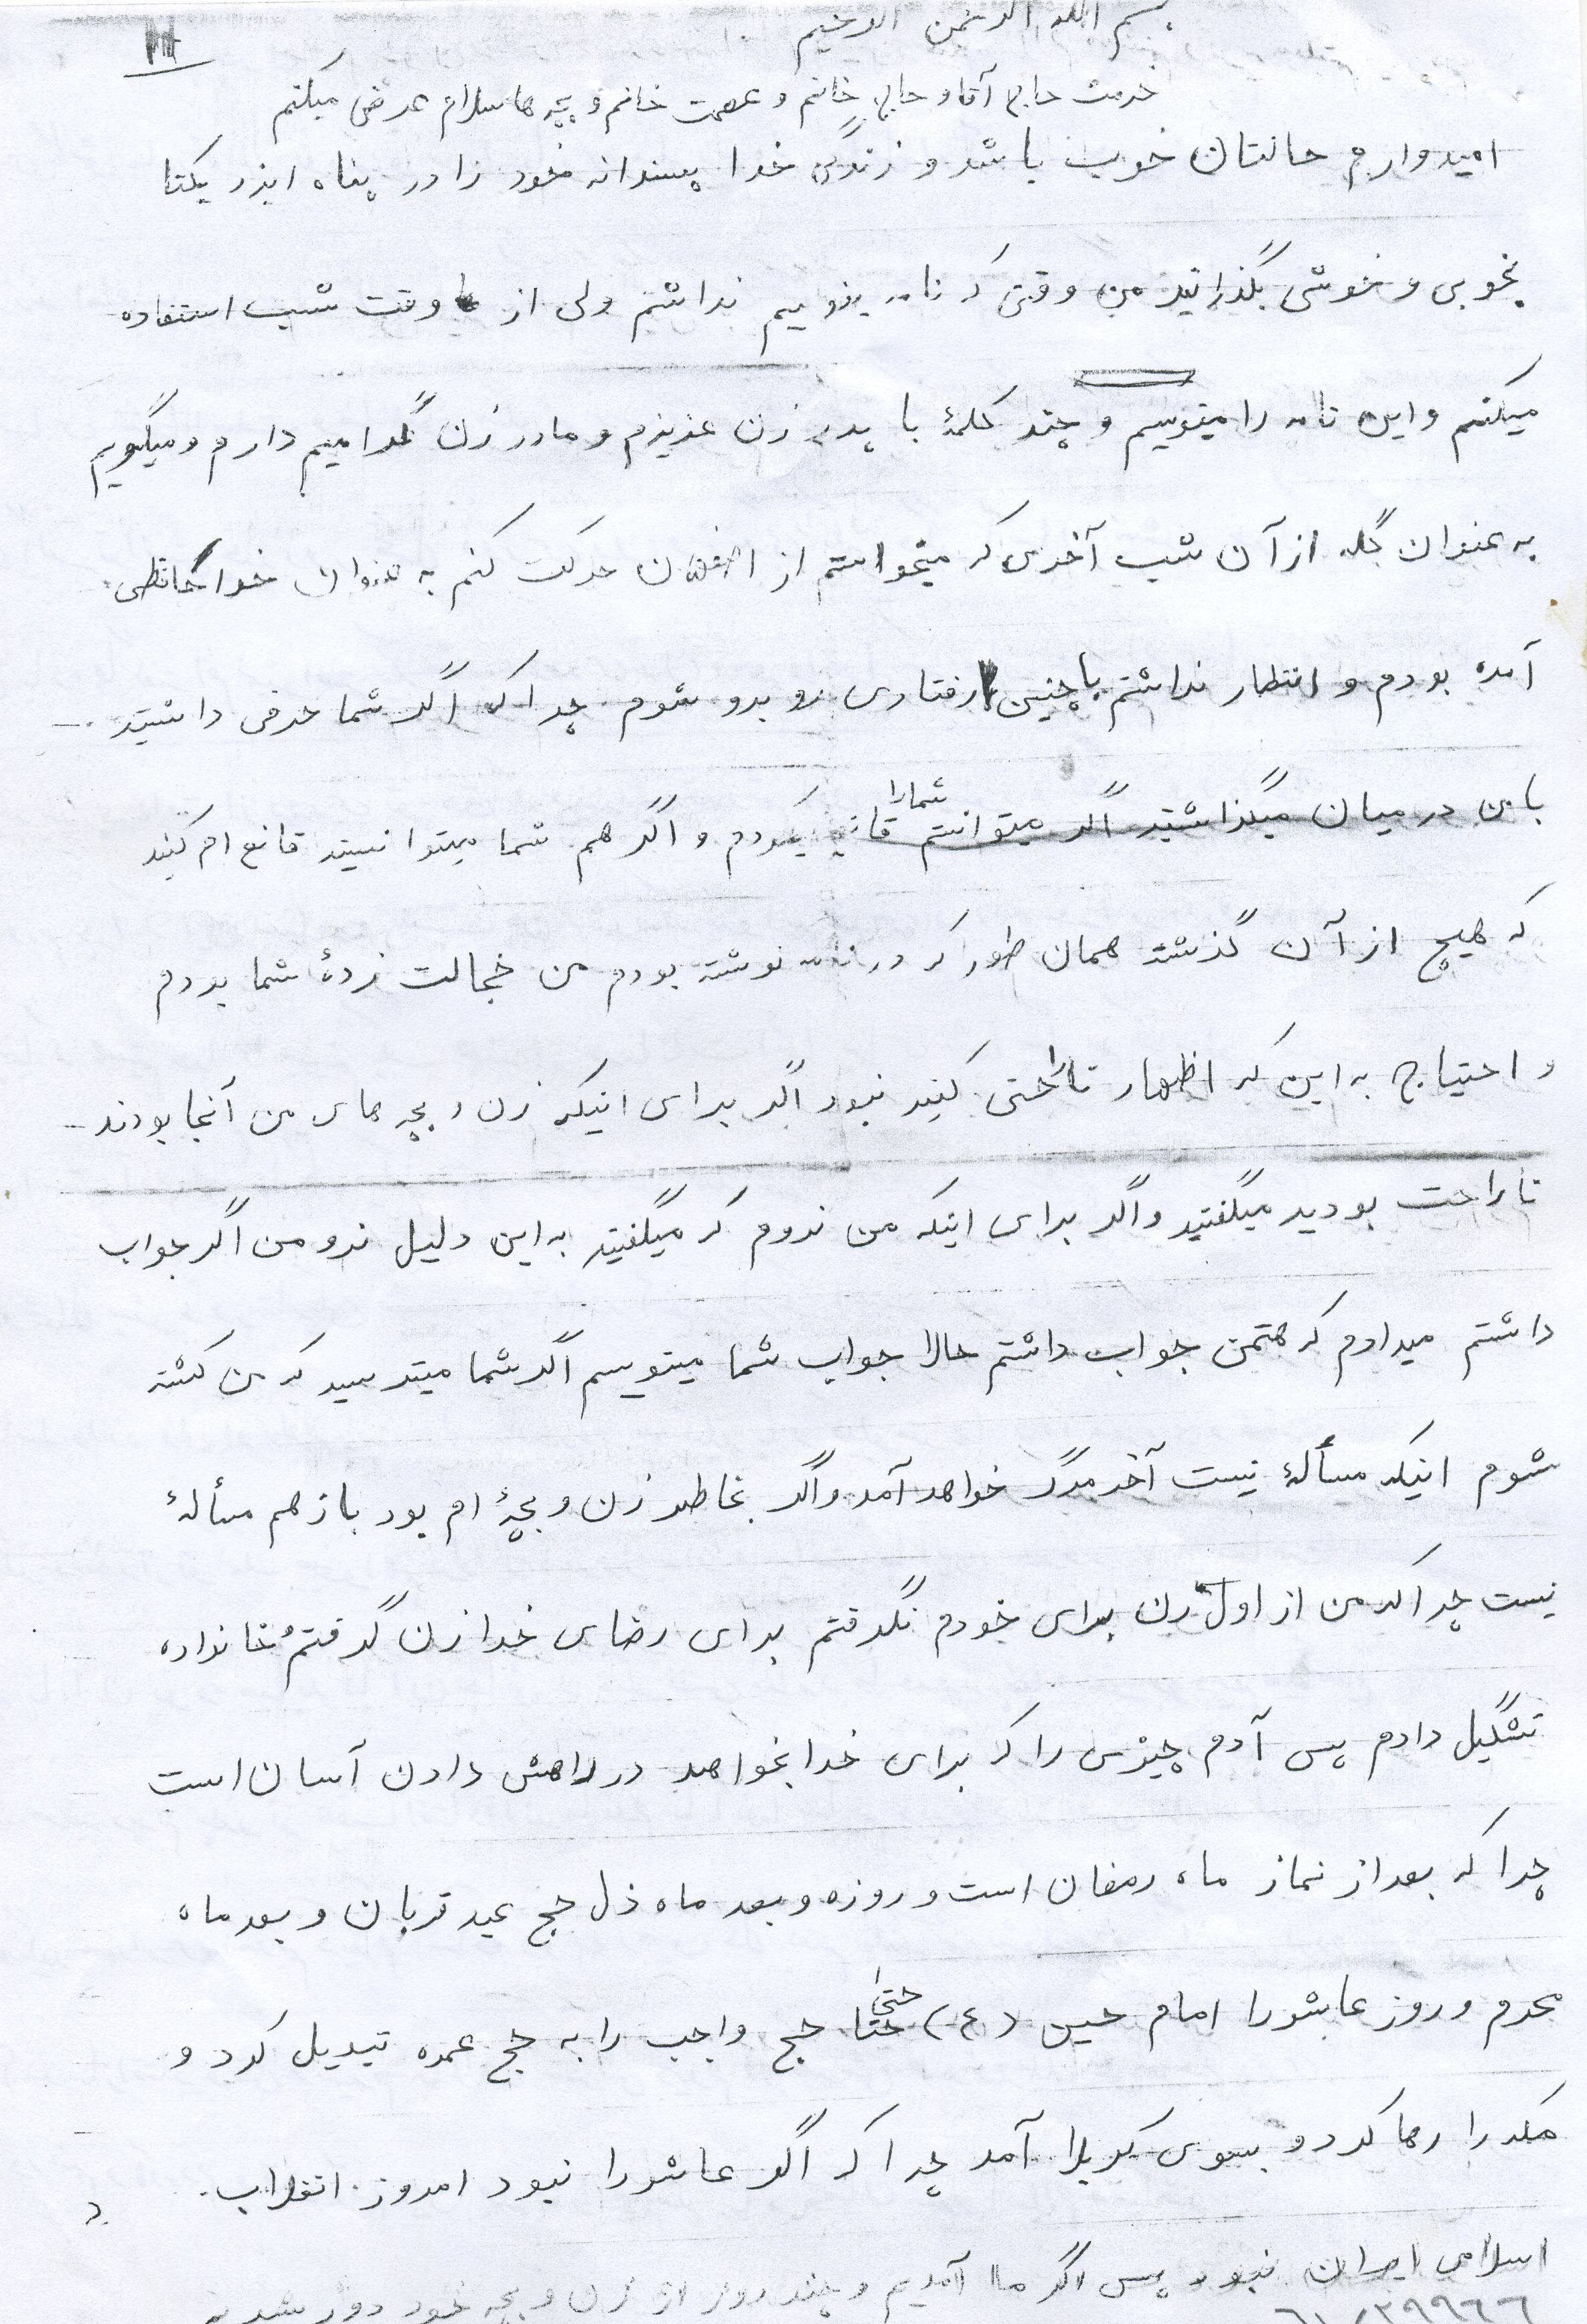 بسم الله الرحمن الرحیم
خدمت حاج آقا و حاج خانم و عصمت خانم و بچه ها سلام عرض میکنم
امیدوارم حالتان خوب باشد و زندگی خدا پسندانه خود را در پناه ایزد یکتا
بخوبی و خوشی بگذرانید من وقتی که نامه بنویسم نداشتم ولی از وقت شب استفاده
میکنم و این نامه را مینویسم و چند کلمهٔ با پدر زن عزیزم و مادر زن گرامیم دارم و میگویم
به عنوان گله از آن شب آخری که میخواستم از اصفهان حرکت کنم به عنوان خداحافظی
آمده بودم و انتظار نداشتم با چنین رفتاری رو برو شوم چرا که اگر شما حرفی داشتید
با من در میان میگذاشتید اگر میتوانستم شما را قانع میکردم و اگر هم شما میتوانستید قانع ام کنید
که هیچ از آن گذشته همان طور که در نامه نوشته بودم من خجالت زدهٔ شما بودم
و احتیاج به این که اظهار ناراحتی کنید نبود اگر برای اینکه زن و بچه های من آنجا بودند
ناراحت بودید میگفتید و اگر برای اینکه من نروم که میگفتید به این دلیل نرو من اگر جواب
داشتم میدادم که هتمن جواب داشتم حالا جواب شما مینویسم اگر شما میترسید که من کشته
شوم اینکه مسألهٔ نیست آخر مرگ خواهد آمد و اگر بخاطر زن و بچهٔ ام بود باز هم مسألهٔ
نیست چرا که من از اول زن برای خودم نگرفتم برای رضای خدا زن گرفتم خانواده
تشگیل دادم پس آدم چیزی را که برای خدا بخواهد در راهش دادن آسان است
چرا که بعد از نماز ماه رمضان است و روزه و بعد ماه ذل حج عید قربان و بعد ماه
محرم و روز عاشورا امام حسین (ع) حتیٰ حج واجب را به حج عمره تبدیل کرد و
مکه را رها کرد و بسوی کربلا آمد چرا که اگر عاشورا نبود امروز انقلاب
اسلامی ایران نبود پس اگر ما آمدیم و چند روز از زن و بچه خود دور شدیم